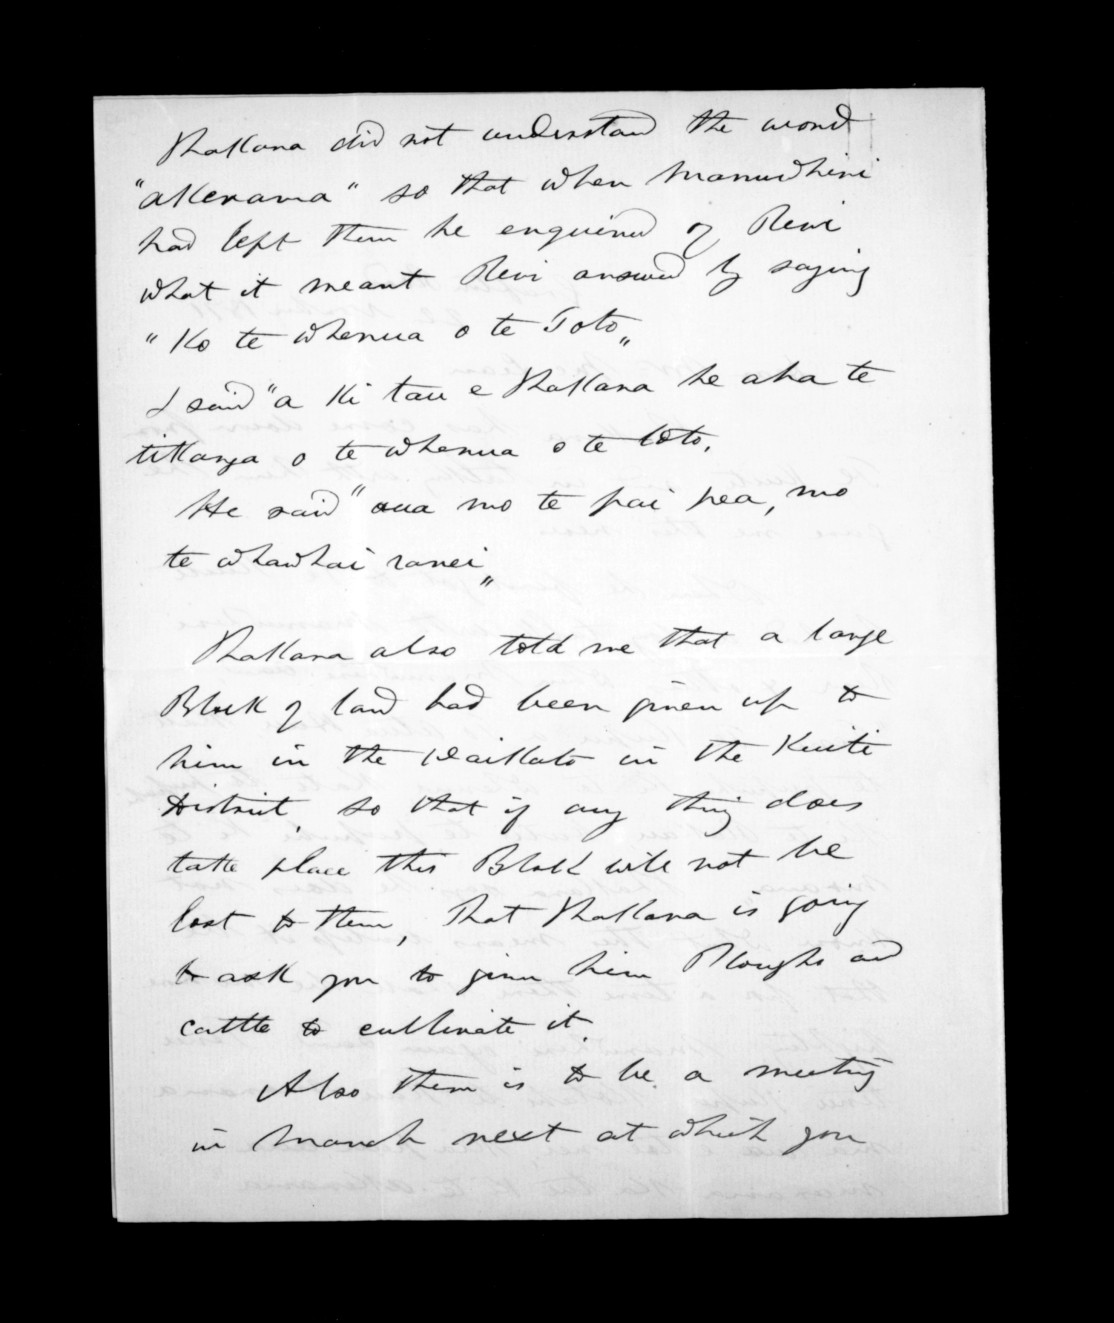 Thakana did not understand the word
"akerama" so that when Manuwhiri
had left them he enquired of Rewi
what it meant Rewi answd by saying
"Ko te whenua o te Toto„
I said "a Ki tau e Thakana he aha te
tikanga o te whenua o te toto.
He said "aua mo te pai pea, mo
te whawhai ranei„
Thakana also told me that a large
Block of land had been given up to
him in the Waikato in the Kuiti
District, so that if any thing does
take place this Block will not be
lost to them, that Thakana is going
to ask you to give him Ploughs and
cattle to cultivate it.
Also there is to be a meeting
in March next at which you